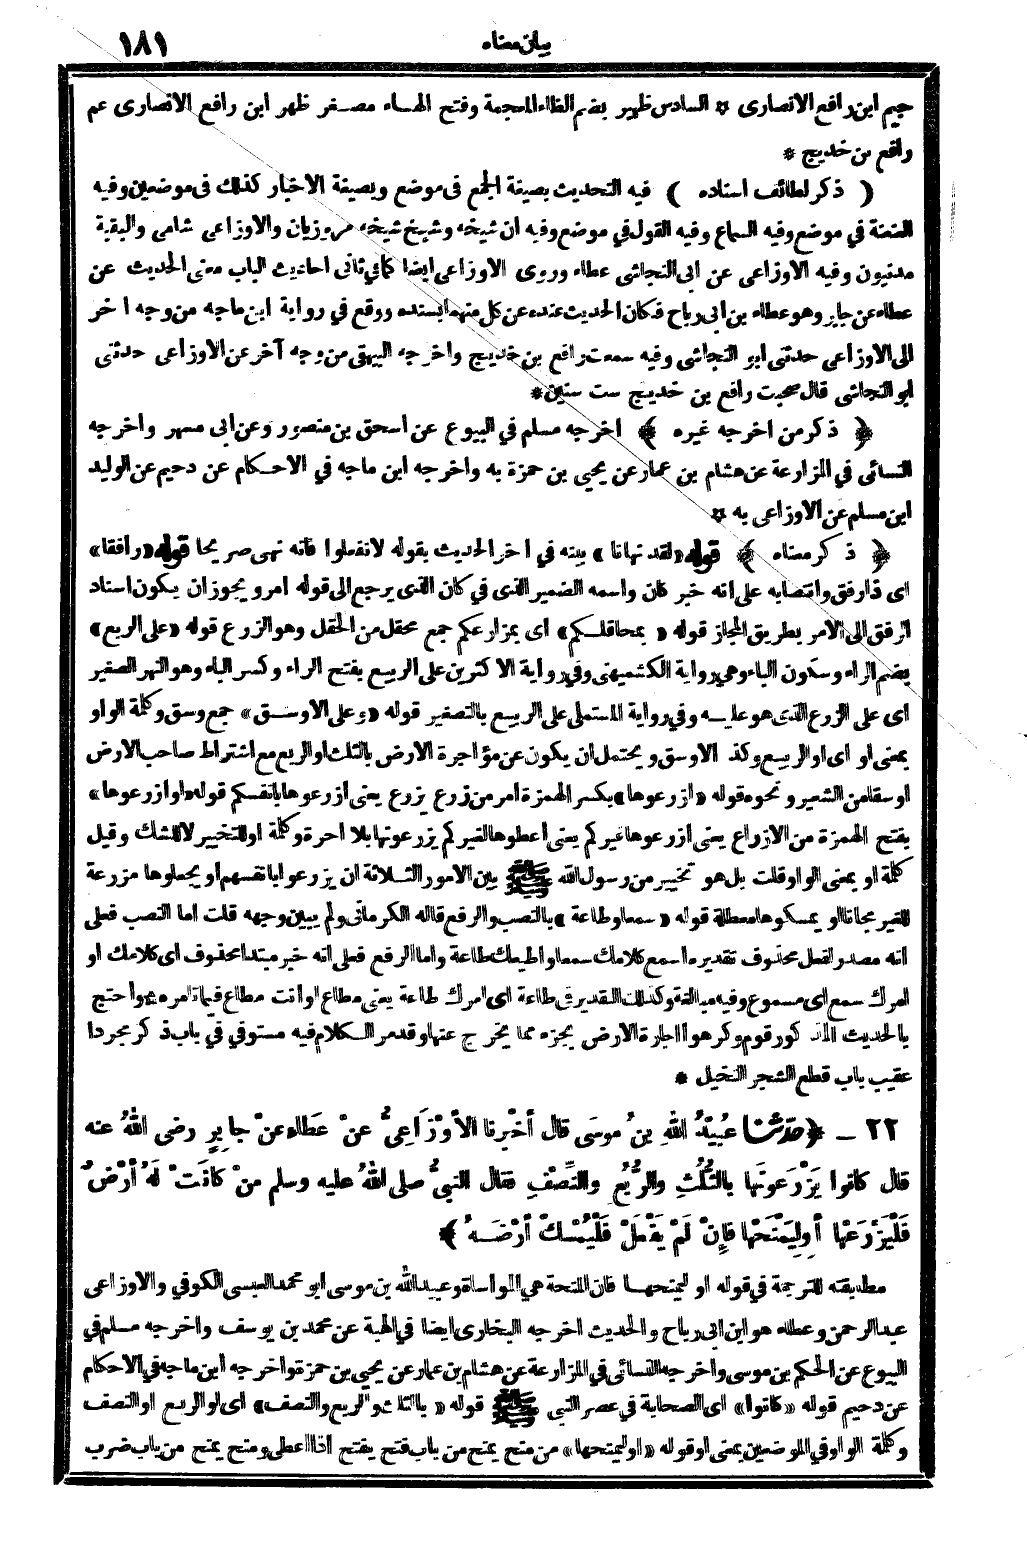 بيان معناه ١٨١
جيم ابن رافع الانصارى ۞ السادس ظهير بضم الظاء المعجمة وفتح الهاء مصغر ظهر ابن رافع الانصارى عم
رافع بن خديج *
( ذكر لطائف اسناده ) فيه التحديث بصيغة الجمع فى موضع وبصيغة الاخبار كذلك فى موضعين وفيه
العنعنة في موضع وفيه السماع وفيه القول في موضع وفيه ان شيخه وشيخ شيخه مروزيان والاوزاعى شامى والبقية
مدنيون وفيه الاوزاعى عن ابى النجاشى عطاء وروى الاوزاعى ايضا كما في ثانى احاديث الباب معنى الحديث عن
عطاء عن جابر وهو عطاء بن ابى رباح فكان الحديث عنده عن كل منهما بسنده ووقع في رواية ابن ماجه من وجه اخر
الى الاوزاعى حدثنى ابو النجاشى وفيه سمعت رافع بن خديج واخرجه البيهقى من وجه آخر عن الاوزاعى حدثنى
ابو النجاشى قال صحبت رافع بن خديج ست سنين *
﴿ ذكر من اخرجه غيره ﴾ اخرجه مسلم في البيوع عن اسحق بن منصور وعن ابى مسهر واخرجه
النسائى في المزارعة عن هشام بن عمار عن يحيى بن حمزة به واخرجه ابن ماجه في الاحكام عن دحيم عن الوليد
ابن مسلم عن الاوزاعى به ۞
﴿ ذكر معناه ﴾ قوله «لقد نهانا» بينه في اخر الحديث بقوله لا تفعلوا فانه نهى صريحا قوله «رافقا»
اى ذا رفق وانتصابه على انه خبر كان واسمه الضمير الذى في كان الذى يرجع الى قوله امر ويجوز ان يكون اسناد
الرفق الى الامر بطريق المجاز قوله « بمحاقلكم» اى بمزارعكم جمع محقل من الحقل وهو الزرع قوله «على الربع»
بضم الراء وسكون الباء وهى رواية الكشميهنى وفي رواية الاكثرين على الربيع بفتح الراء وكسر الباء وهو النهر الصغير
اى على الزرع الذى هو عليه وفي رواية المستملى على الربيع بالتصغير قوله «وعلى الاوسق» جمع وسق وكلمة الواو
بمعنى او اى او الربيع وكذا الاوسق ويحتمل ان يكون عن مؤاجرة الارض بالثلث او الربع مع اشتراط صاحب الارض
اوسقا من الشعير ونحوه قوله «ازرعوها» بكسر الهمزة امر من زرع يزرع يعنى ازرعوها بانفسكم قوله «او ازرعوها»
بفتح الهمزة من الازراع يعنى ازرعوها غيركم يعنى اعطوها لغيركم يزرعونها بلا اجرة وكلمة او للتخيير لا للشك وقيل
كلمة او بمعنى الواو قلت بل هو تخيير من رسول الله ﷺ بين الامور الثلاثة ان يزرعوا بانفسهم او يجعلوها مزرعة
للغير مجانا او يمسكوها معطلة قوله « سمعا وطاعة» بالنصب والرفع قاله الكرمانى ولم يبين وجهه قلت اما النصب فعلى
انه مصدر لفعل محذوف تقديره اسمع كلامك سمعا واطيعك طاعة واما الرفع فعلى انه خبر مبتدا محذوف اى كلامك او
امرك سمع اى مسموع وفيه مبالغة وكذلك التقدير في طاعة اى امرك طاعة يعنى مطاع او انت مطاع فيما تامره * واحتج
بالحديث المذكور قوم وكرهوا اجارة الارض بجزء مما يخرج عنها وقد مر الكلام فيه مستوفي في باب ذكر مجردا
عقيب باب قطع الشجر النخيل *
٢٢ ــ ﴿حَدَّثَنَا عُبَيْدُ اللهِ بنُ موسَى قال أخْبرنا الأوْزَاعِىُّ عنْ عَطَاءٍ عنْ جابِرٍ رضى اللهُ عنه
قال كانوا يَزْرَعُونَها بالثُّلُثِ والرُّبُعِ والنِّصْفِ فقال النبىُّ صلى اللهُ عليه وسلم منْ كانَتْ لَهُ أرْضٌ
فَلْيَزْرَعْها أو لِيَمْنَحْها فإنْ لَمْ يَفْعَلْ فَلْيُمْسِكْ أرْضَهُ ﴾
مطابقته للترجمة في قوله او ليمنحها فان المنحة هي المواساة وعبيد الله بن موسى ابو محمد العبسى الكوفي والاوزاعى
عبد الرحمن وعطاء هو ابن ابى رباح والحديث اخرجه البخارى ايضا في الهبة عن محمد بن يوسف واخرجه مسلم في
البيوع عن الحكم بن موسى واخرجه النسائى في المزارعة عن هشام بن عمار عن يحيى بن حمزة واخرجه ابن ماجه في الاحكام
عن دحيم قوله «كانوا» اى الصحابة في عصر النبى ﷺ قوله « بالثلث والربع والنصف» اى او الربع او النصف
وكلمة الواو في الموضعين بمعنى او قوله «او ليمنحها» من منح يمنح من باب فتح يفتح اذا اعطى ومنح يمنح من باب ضرب